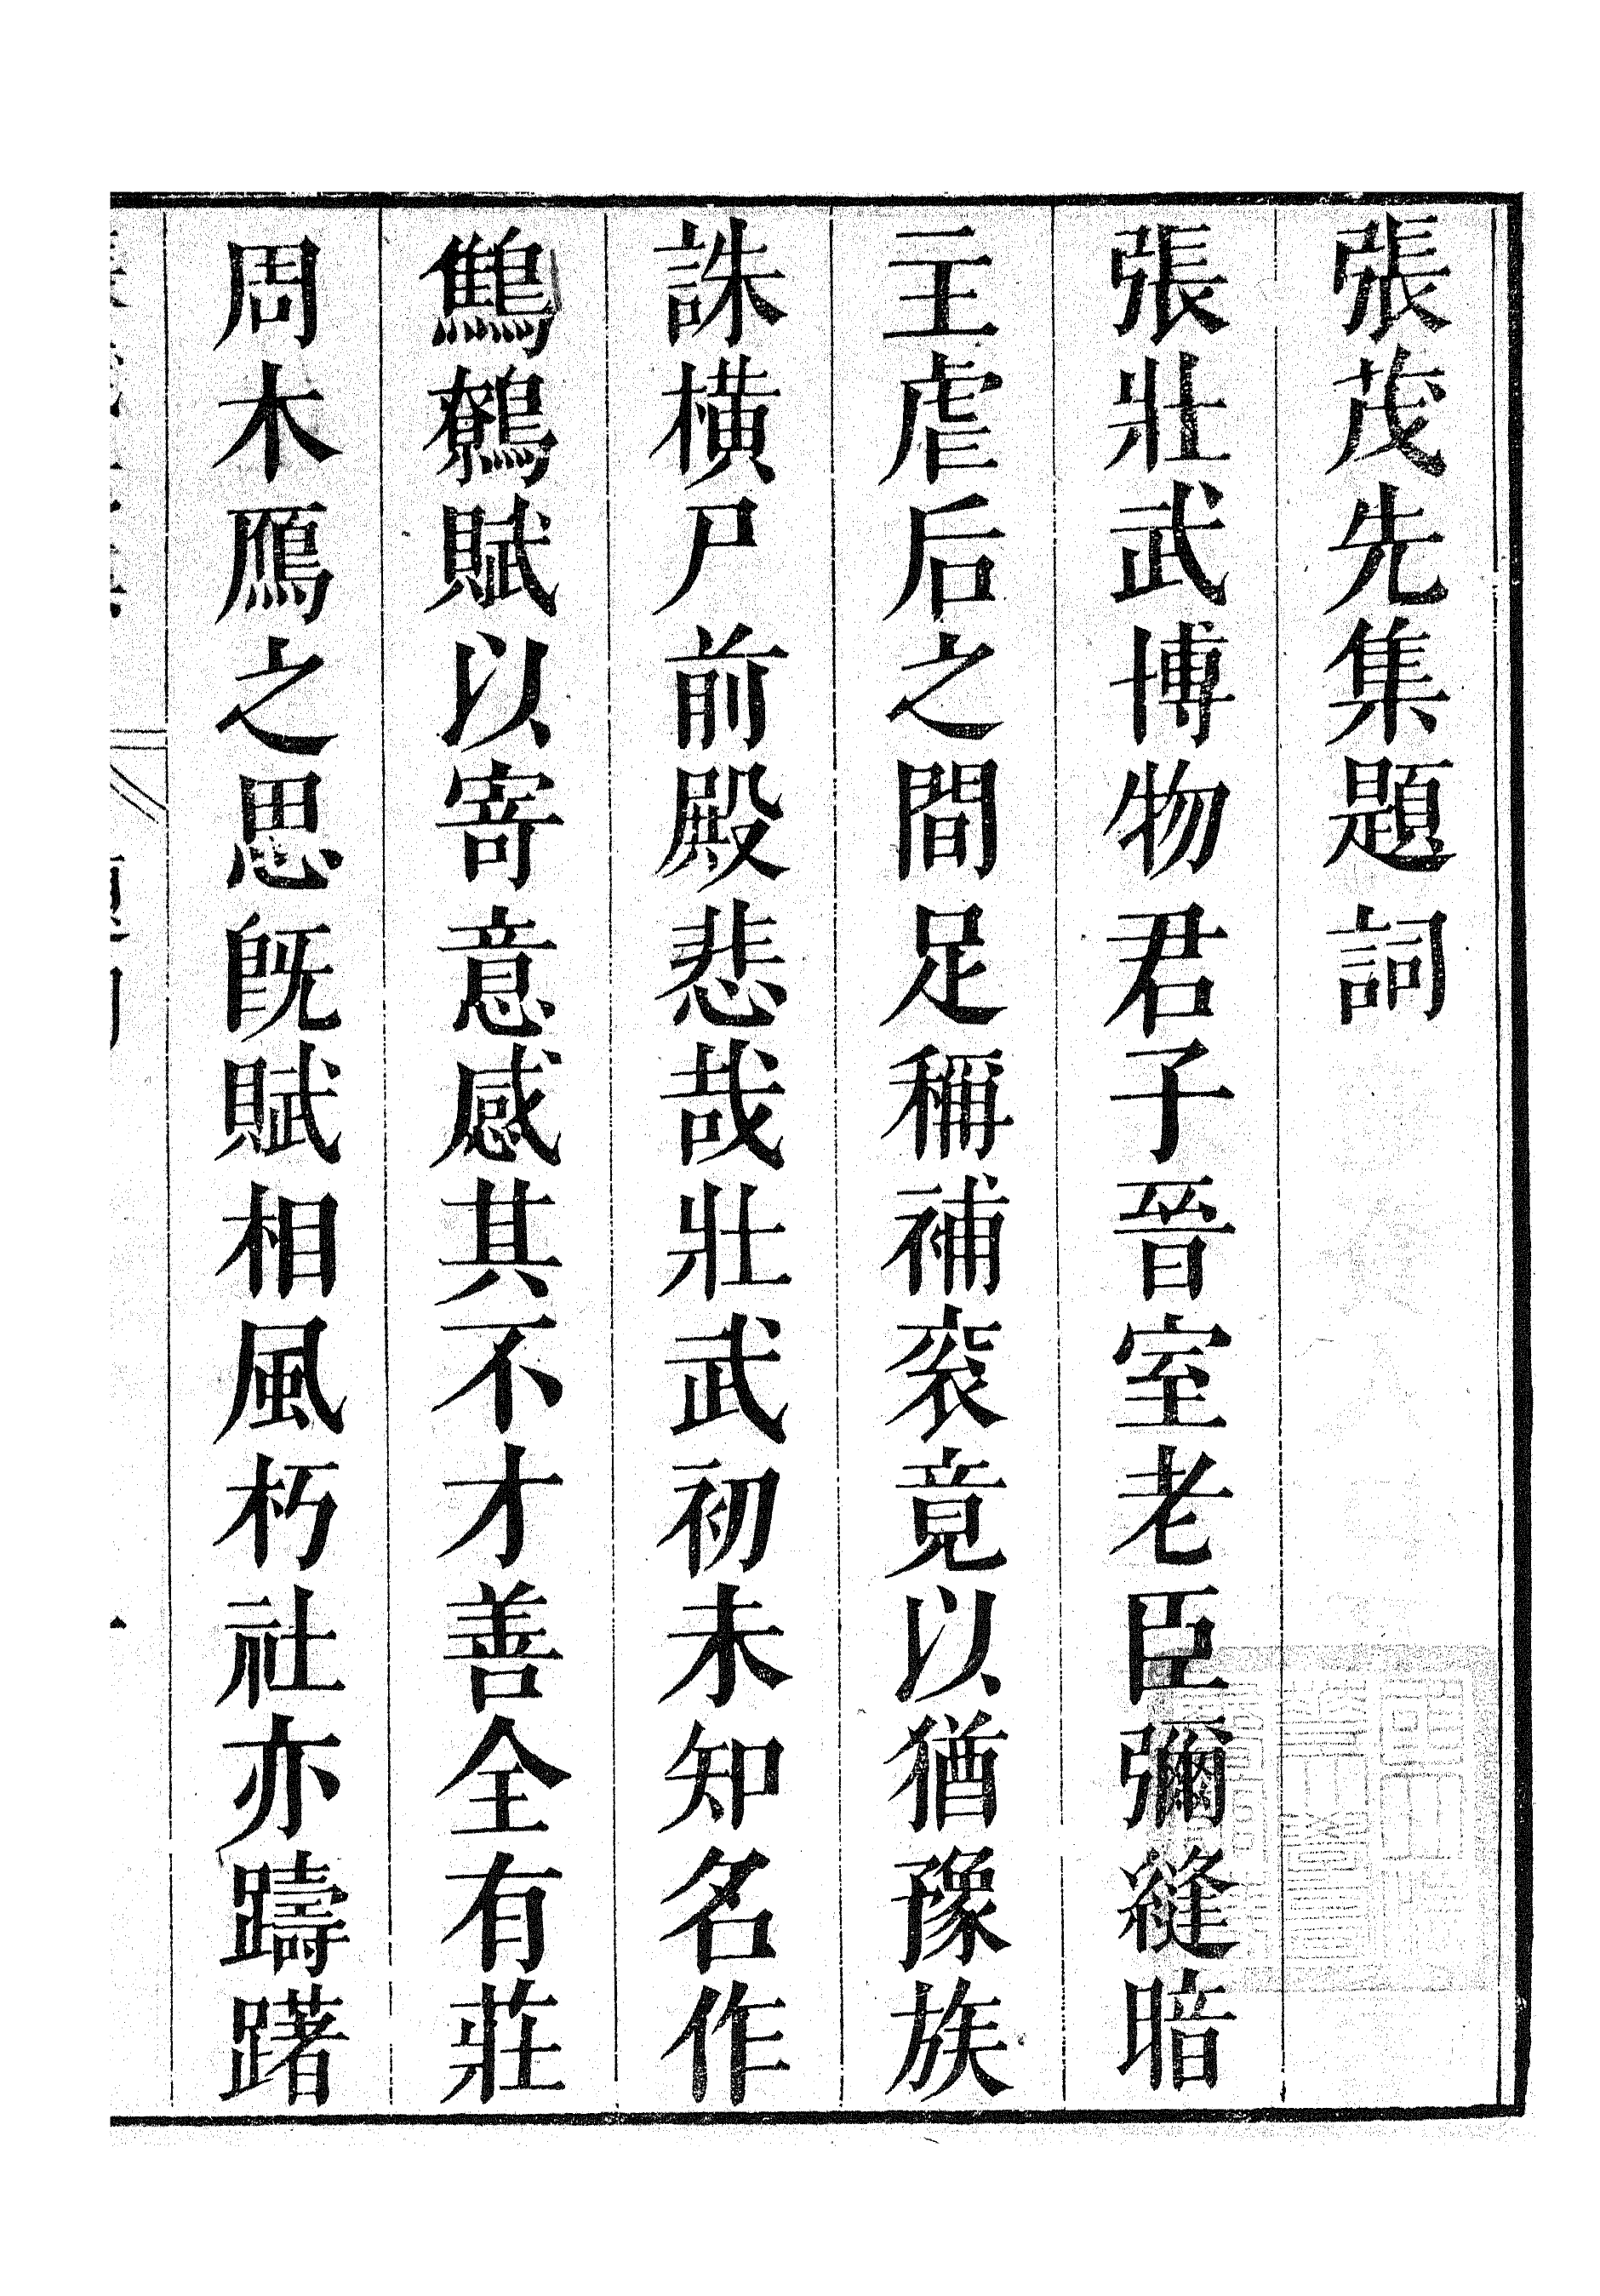 張茂先集題詞
張壯武博物君子晉室老臣彌縫暗
主虐后之間足稱補衮竟以猶豫族
誅橫尸前殿悲哉壯武初未知名作
鷦鷯賦以寄意感其不才善全有莊
周木鴈之思旣賦相風朽社亦躊躇